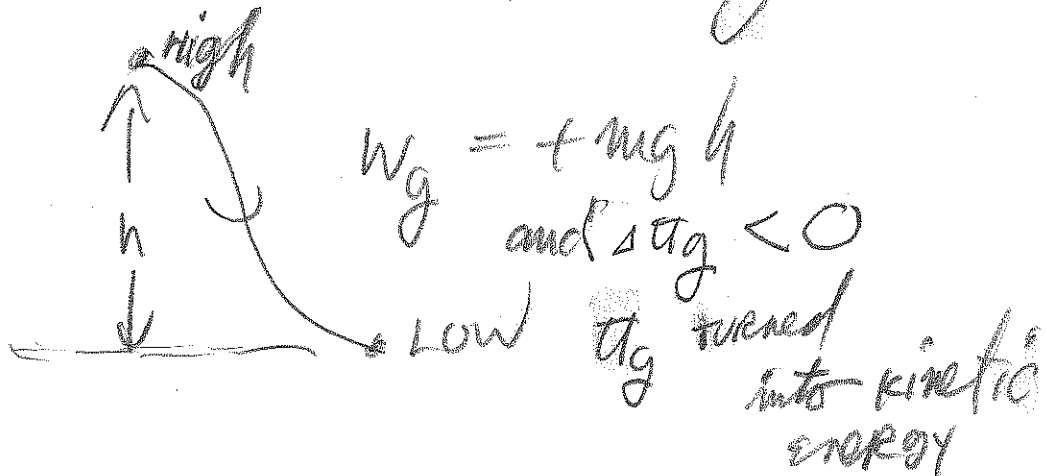 High
h
W_g = + mg h
and ΔU_g < 0
LOW
U_g turned
into kinetic
energy